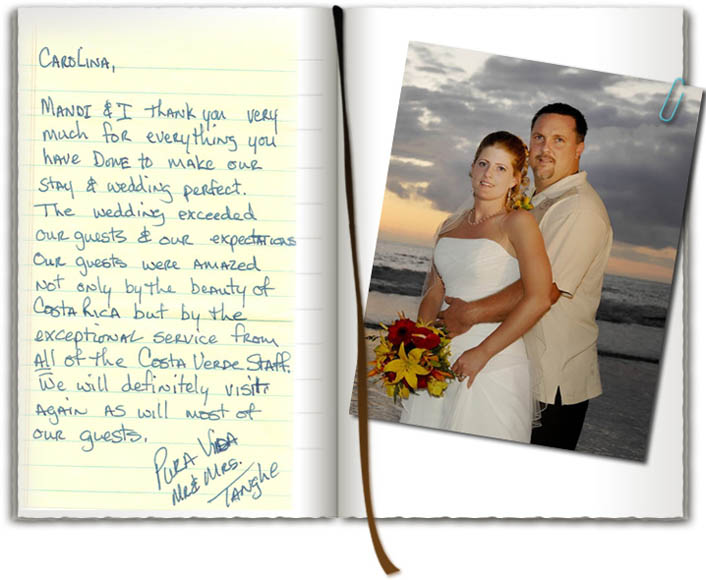 Carolina,
Mandi & I thank you very
much for everything you
have Done to make our
stay & wedding perfect.
The wedding exceeded
our guests & our expectations
Our guests were amazed
not only by the beauty of
Costa Rica but by the
exceptional service from
All of the Costa Verde Staff.
We will definitely visit
again as will most of
our guests.
Pura Vida
Mr & Mrs.
Tanghe